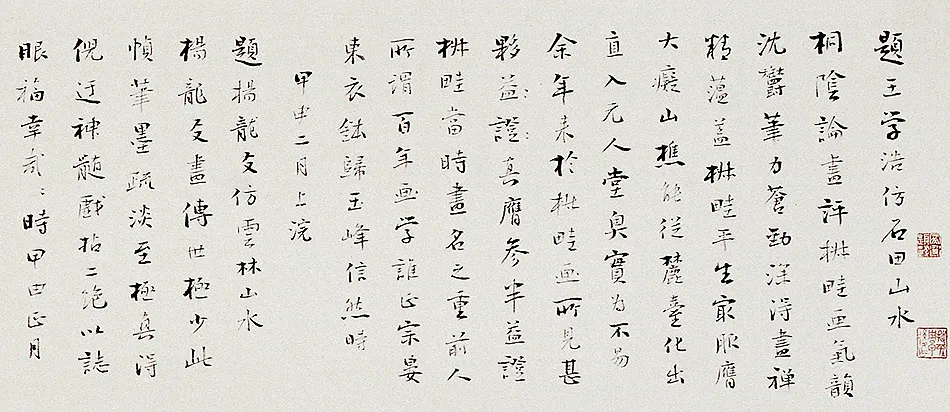 題王学浩仿石田山水
桐陰論畫評椒畦画氣韻
沈鬱筆力蒼勁深得畫禅
精蘊蓋椒畦平生最服膺
大癡山樵能從麓臺化出
直入元人堂奥實为不易
余年来於椒畦画所見甚
夥益證其膺参半益證
椒畦當時畫名之重前人
所謂百年画学誰正宗晏
東衣鉢歸玉峰信然時
甲申二月上浣
題楊龍友仿雲林山水
楊龍友畫傳世極少此
幀筆墨疏淡至極真得
倪迂神髓戲拈二絶以誌
眼福幸哉々時甲申正月